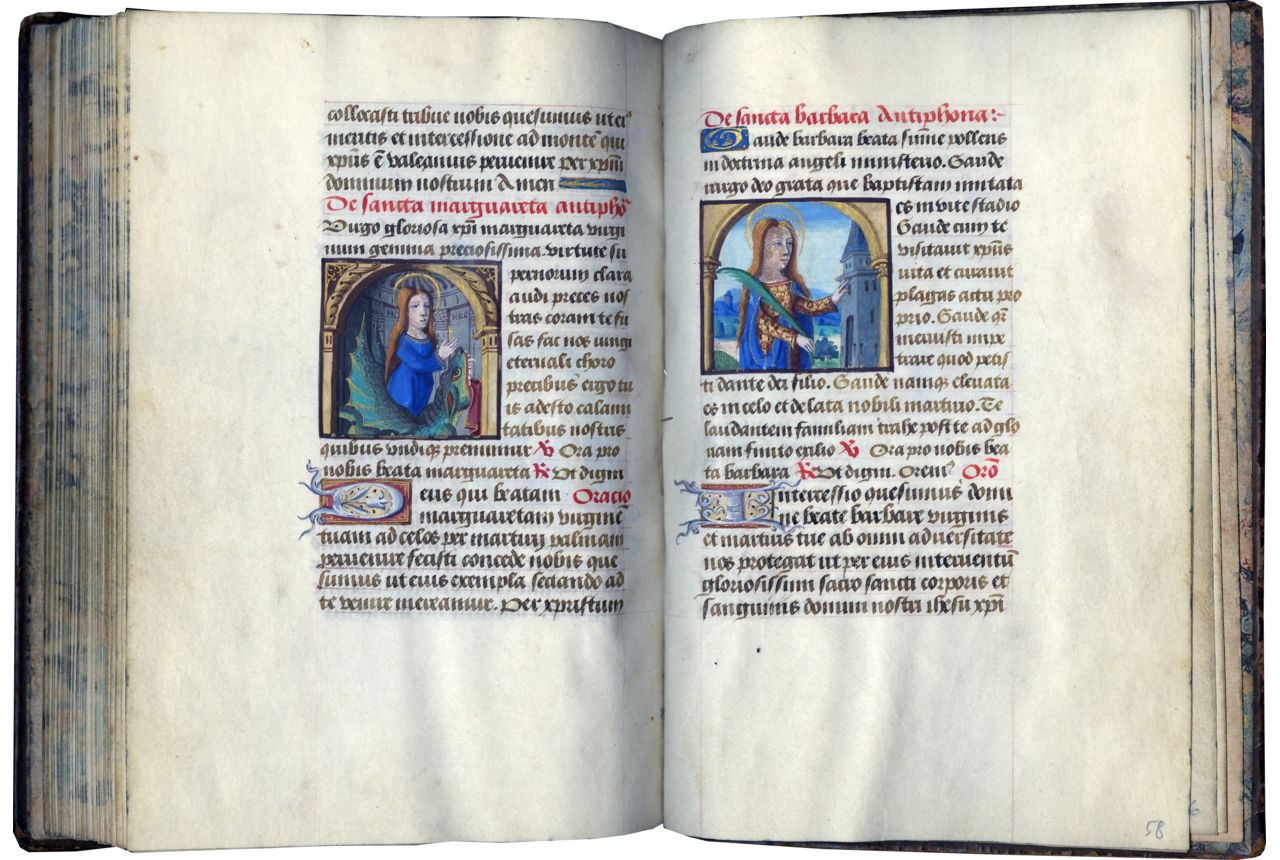 collocasti tribue nobis quesumus ut ei⁹
meritis et intercessione ad montē qui
xp̄us ē valeamus pervenire per xpm̄
dominum nostrum Amen
De sancta marguareta antiphō
Virgo gloriosa xp̄i marguareta virgi
num gemma preciosissima. virtute su
pernorum clara
audi preces nos
tras coram te fu
sas fac nos iungi
eternali choro
precibus ergo tu
is adesto calami
tatibus nostris
quibus vndiqȝ premimur ℣ Ora pro
nobis beata marguareta ℟ Vt digni
Deus qui beatam Oracio
marguaretam virginē
tuam ad celos per martirij palmam
pervenire fecisti concede nobis que
sumus ut eius exempla sectando ad
te venire mereamur. Per xpristum
De sancta barbara Antiphona:-
Gaude barbara beata sume pollens
in doctrina angeli ministerio. Gaude
virgo deo grata que baptistam imitata
es in vite stadio
Gaude cum te
visitavit xp̄us
vita et curavit
plagas actu pro
prio. Gaude qr̄
meruisti impe
trare quod petis
ti dante dei filio. Gaude namqȝ elevata
es in celo et delata nobili martirio. Te
laudantem familiam trahe post te ad glo
riam finito exilio ℣ Ora pro nobis bea
ta barbara ℟ Vt digni. Orem⁹ Orō
Intercessio quesumus domi
ne beate barbare virginis
et martiris tue ab omni adversitate
nos protegat ut per eius interventū
gloriosissimi sacro sancti corporis et
sanguinis domini nostri ihesu xp̄i
58